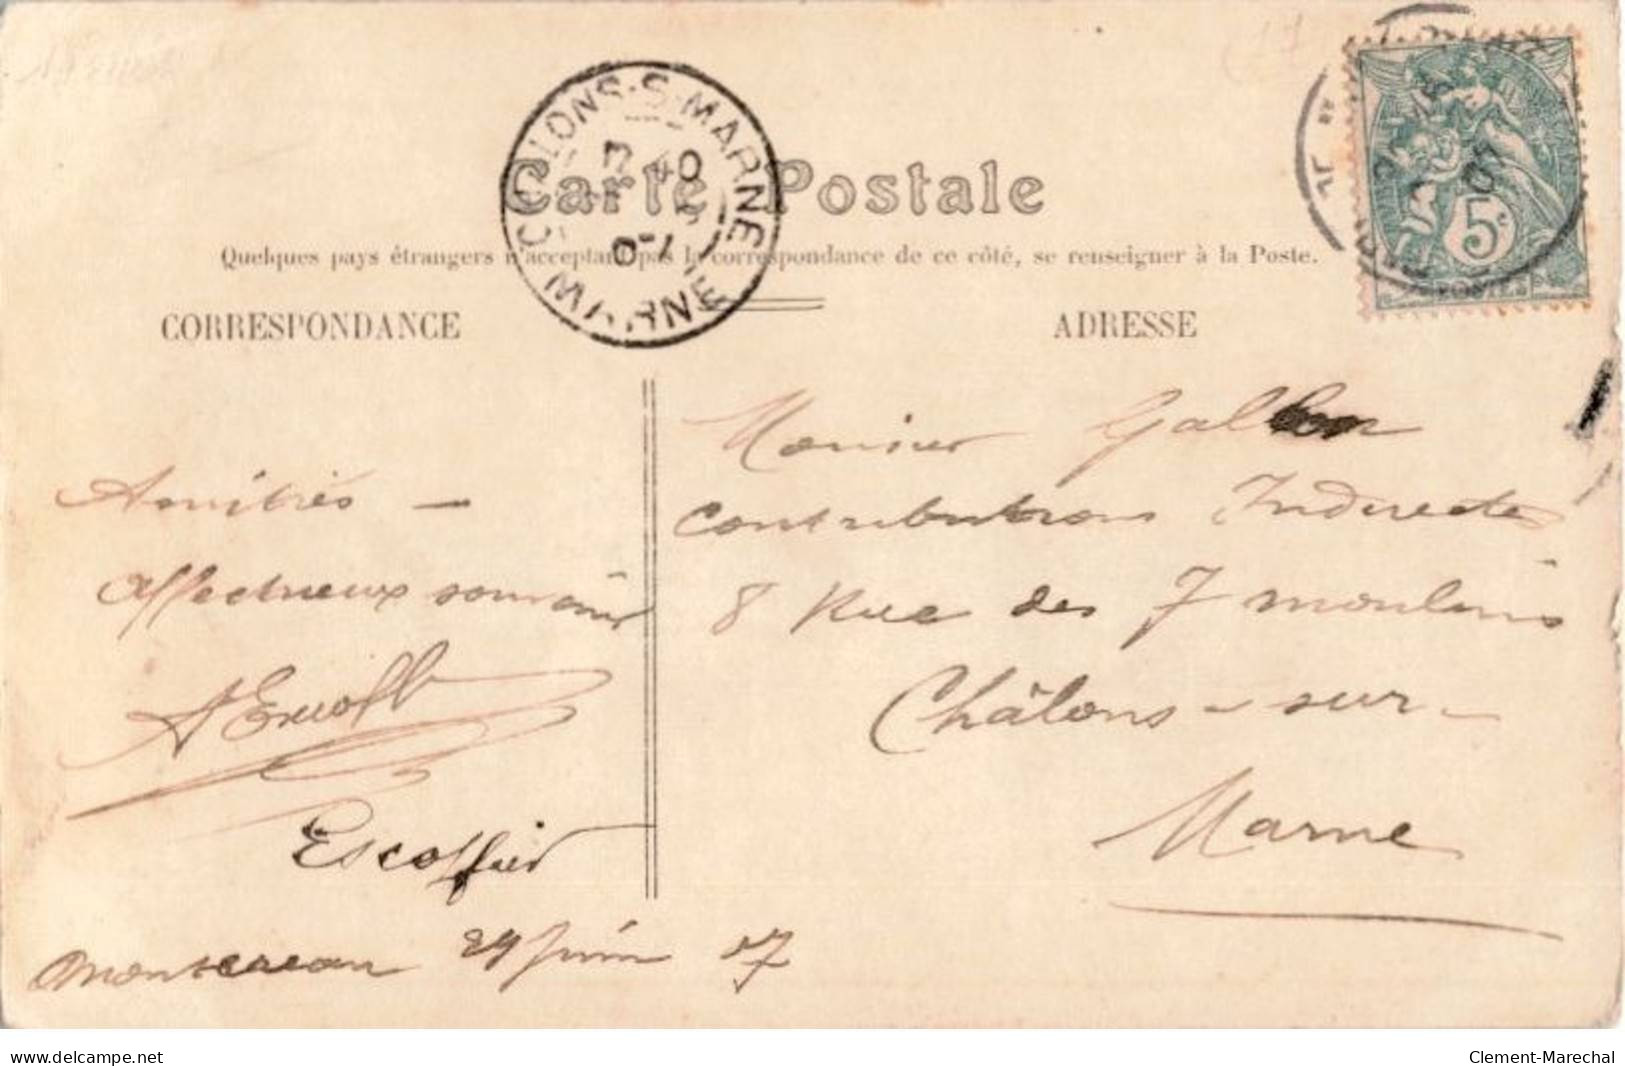 Carte Postale
Quelques pays étrangers n'acceptant pas la correspondance de ce côté, se renseigner à la Poste.
CORRESPONDANCE
ADRESSE
CHALONS-S-MARNE
MARNE
5c
POSTES
Amitiés —
affectueux souvenir
Escoffier
Montereau 29 Juin 07
Monsieur
Contributions Indirectes
8 Rue des 7 moulins
Châlons-sur-
Marne
delcampe.net
Clement-Marechal